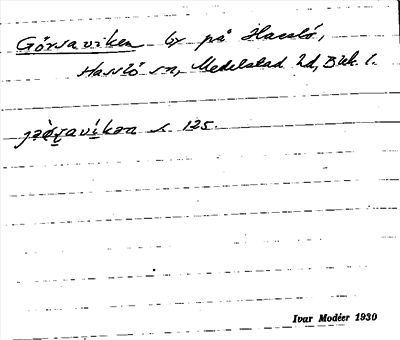 Görsaviken by på Hasslö,
Hasslö sn, Medelstad hd, Blek. l.
s. 125.
Ivar Modéer 1930